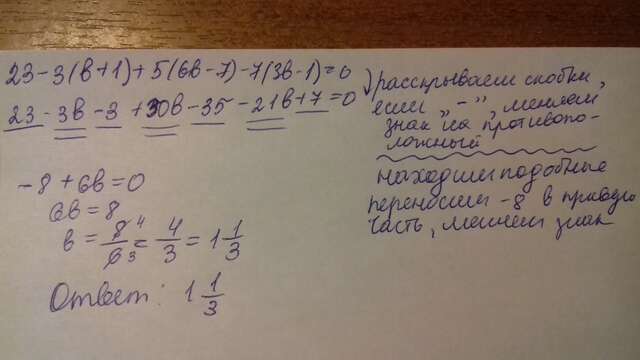 23-3(b+1)+5(6b-7)-7(3b-1)=0
23-3b-3+30b-35-21b+7=0
-8+6b=0
6b=8
b=8/6=4/3=1 1/3
Ответ: 1 1/3
раскрываем скобки,
если „-", меняем
знак на противопо-
ложный
находим подобные
переносим -8 в правую
часть, меняем знак